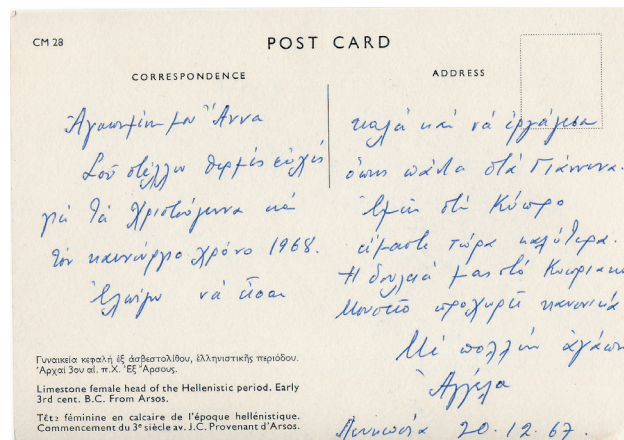 CM 28
POST CARD
CORRESPONDENCE
ADDRESS
Ἀγαπημένη μου Ἄννα
Σοῦ στέλλω θερμές εὐχές
γιά τά Χριστούγεννα καί
τόν καινούργιο χρόνο 1968.
Ἐλπίζω νά εἶσαι
καλά καί νά ἐργάζεσαι
ὅπως πάντα στά Γιάννινα.
Ἐμεῖς στή Κύπρο
εἴμαστε τώρα καλύτερα.
Ἡ δουλειά μας στό Κυπριακό
Μουσεῖο προχωρεῖ κανονικά
Μέ πολλήν ἀγάπη
Ἀγγέλα
Λευκωσία 20.12.67.
Γυναικεία κεφαλὴ ἐξ ἀσβεστολίθου, ἑλληνιστικῆς περιόδου.
Ἀρχαὶ 3ου αἰ. π.Χ. Ἐξ Ἄρσους.
Limestone female head of the Hellenistic period. Early
3rd cent. B.C. From Arsos.
Tête féminine en calcaire de l'époque hellénistique.
Commencement du 3e siècle av. J.C. Provenant d'Arsos.